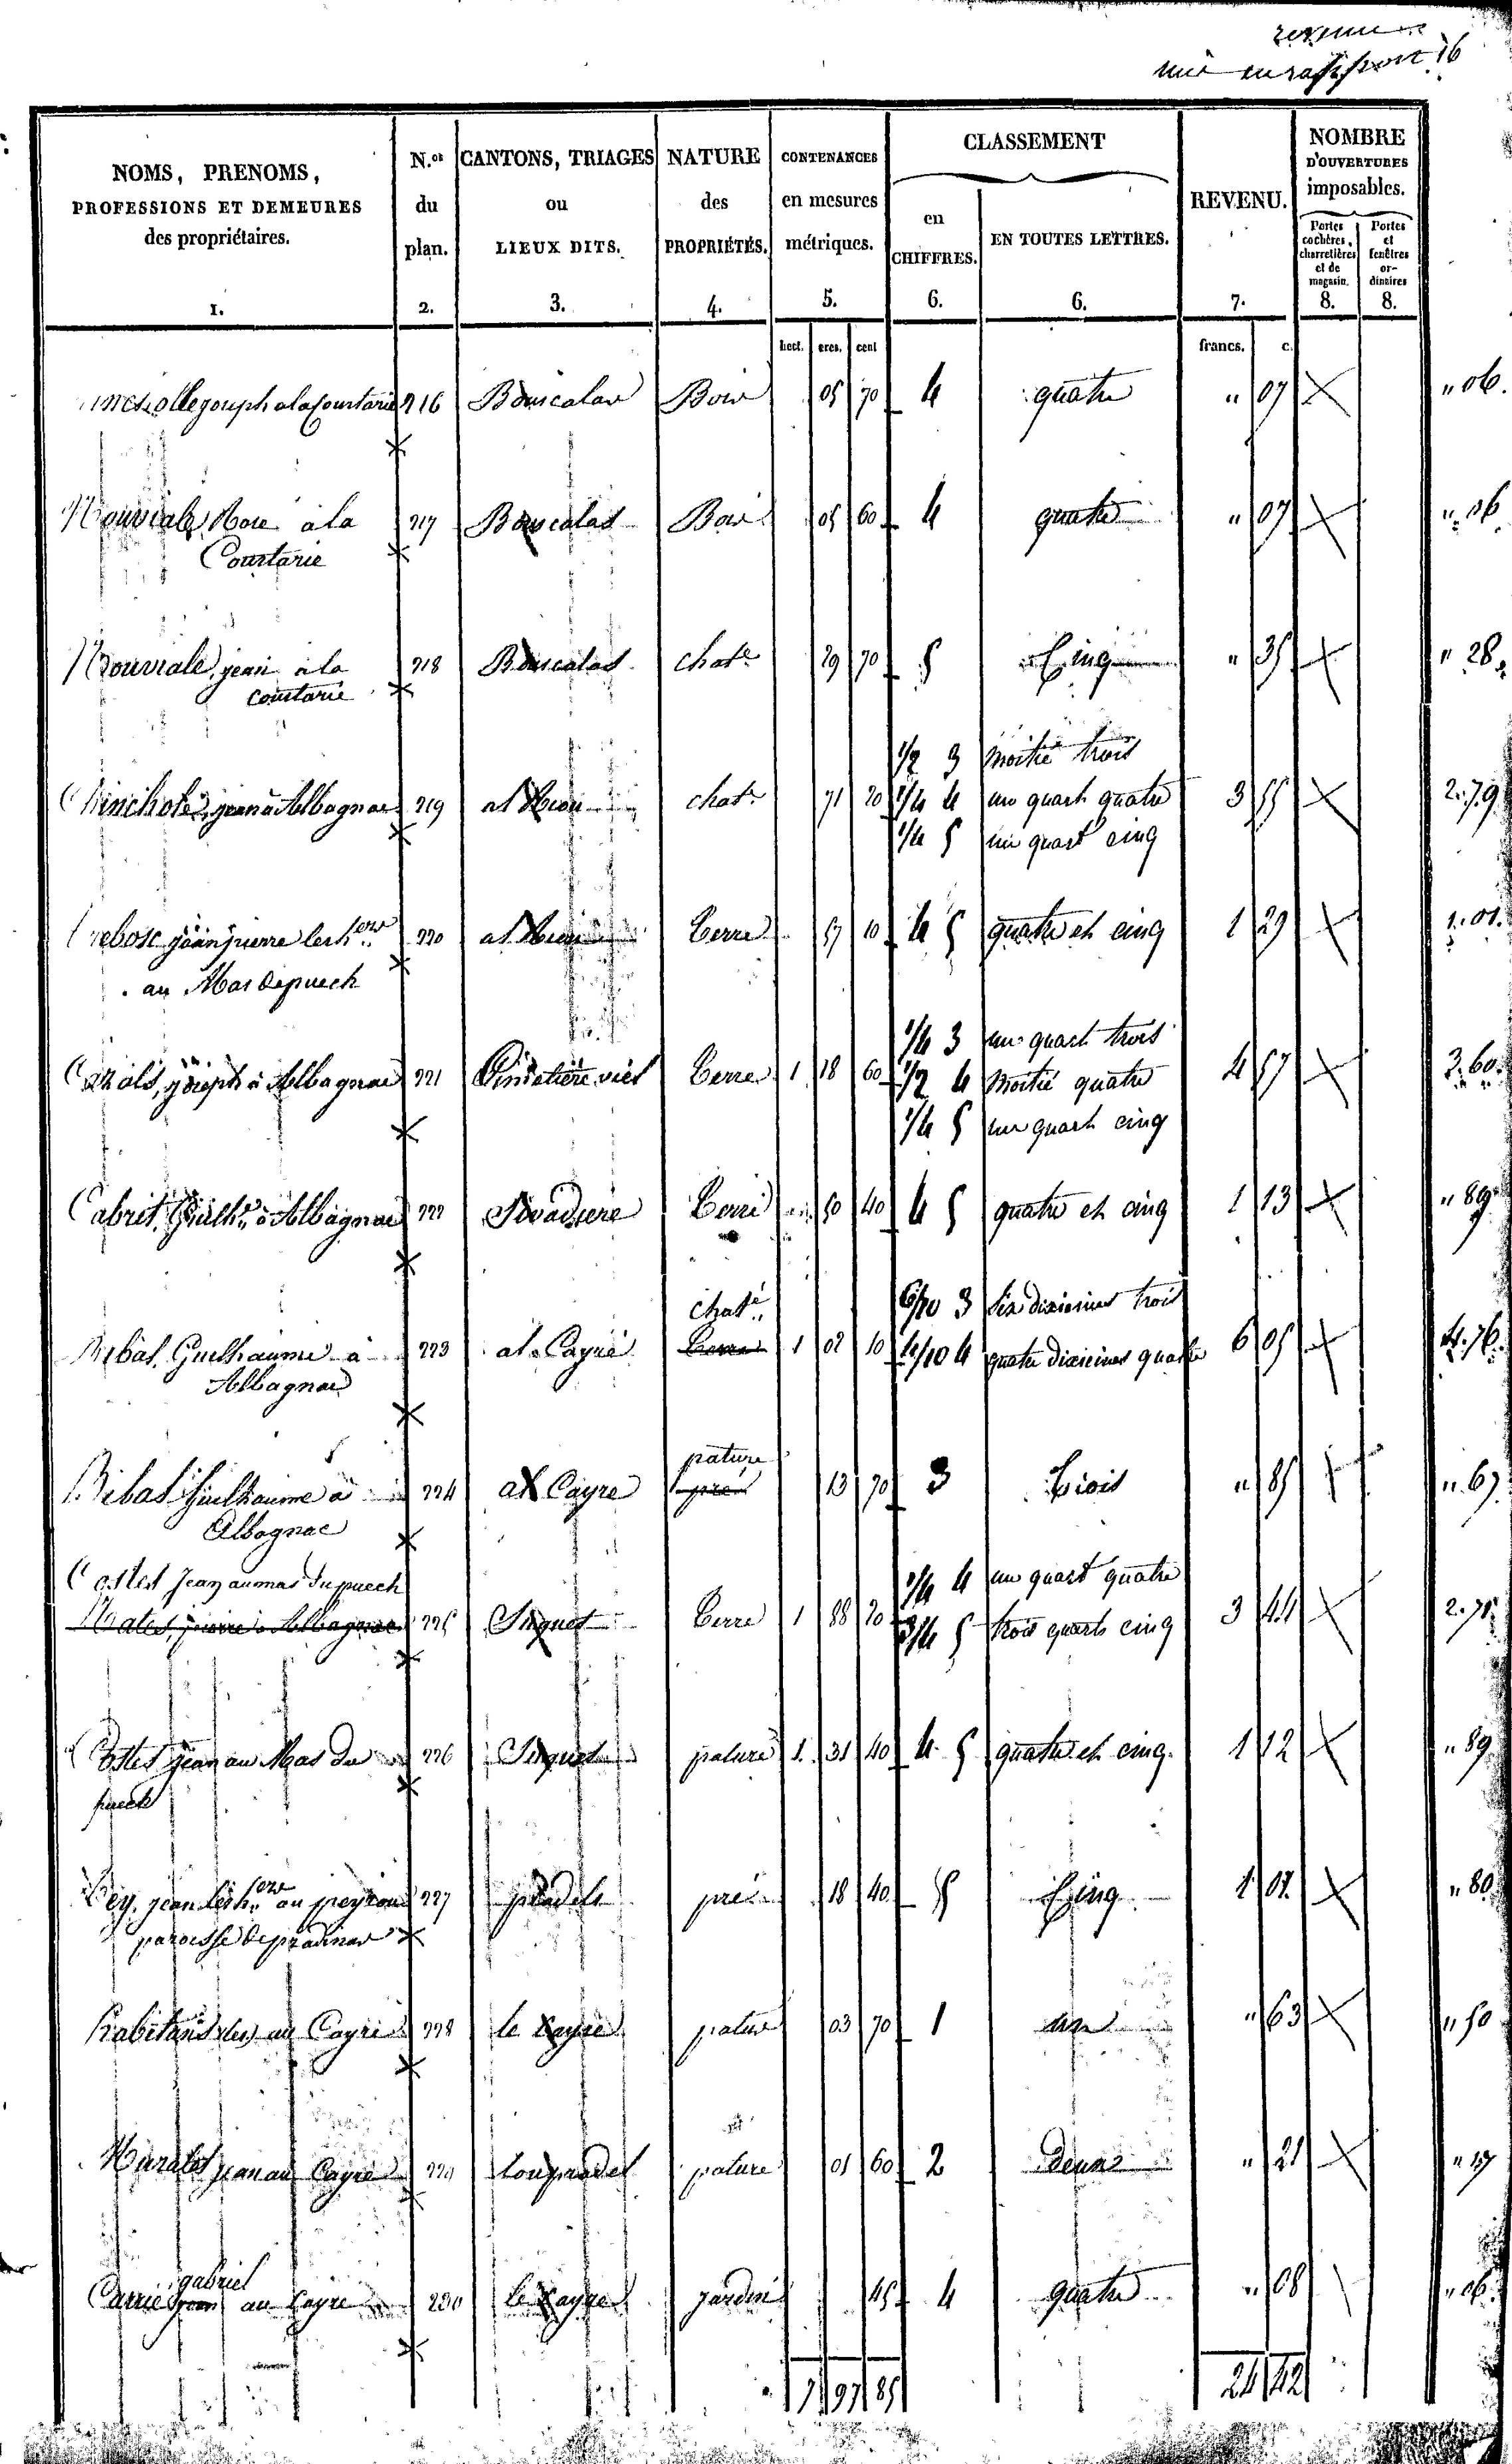 revenu
mis en rapport 16
NOMS, PRENOMS, PROFESSIONS ET DEMEURES des propriétaires. 1.
N.os du plan. 2.
CANTONS, TRIAGES ou LIEUX DITS. 3.
NATURE des PROPRIÉTÉS. 4.
CONTENANCES en mesures métriques. 5.
CLASSEMENT
en CHIFFRES. 6.
EN TOUTES LETTRES. 6.
REVENU. 7.
NOMBRE D'OUVERTURES imposables.
Portes cochères, charretières et de magasin. 8.
Portes et fenêtres ordinaires 8.
hect. ares. cent francs. c.
joseph a la Courtarie 716 Bouscalas Bois 05 70 4 quatre " 07 " 06.
Nouviale, Rose à la 717 Bouscalas Bois 05 60 4 quatre " 07 " 06
Courtarie
Nouviale, jean à la 718 Bouscalas chat.e 29 70 5 Cinq " 35 " 28
courtarie
1/2 3 moitié trois
jean à Albagnac 719 chat.e 71 20 1/4 4 un quart quatre 3 55 2.79
1/4 5 un quart cinq
jean pierre les h.ers 720 Terre 57 10 4 5 quatre et cinq 1 29 1.01.
au Mas depuech
1/4 3 un quart trois
joseph à Albagnac 721 Terre 1 18 60 1/2 4 moitié quatre 4 57 3.60
1/4 5 un quart cinq
Cabrit, à Albagnac 722 Terre 50 40 4 5 quatre et cinq 1 13 " 89
chat.e 6/10 3 Six dixièmes trois
Ribat, Guilhaume à 723 al Cayré Terre 1 02 10 4/10 4 quatre dixièmes quatre 6 05 4.76
Albagnac
pature
Ribat Guilhaume à 724 al Cayre pré 13 70 3 Trois " 85 " 67
Albagnac
Costes Jean au mas du puech 1/4 4 un quart quatre
pierre à Albagnac 725 Terre 1 88 20 3/4 5 trois quarts cinq 3 44 2.71
Costes jean au Mas du 726 pature 1 31 40 4 5 quatre et cinq. 1 12 " 89
puech
jean les h.ers au peyrou 727 pradels pré 18 40 5 Cinq 1 02 " 80
paroisse de pradinas
habitans (les) au Cayre 728 le Cayre pature 03 70 1 un " 63 " 50
jean au Cayre 729 lou pradel pature 01 60 2 Deux " 21 " 17
gabriel
Carrié jean au Cayre 730 le Cayre jardin 45 4 quatre " 08 " 06
7 97 85 24 42